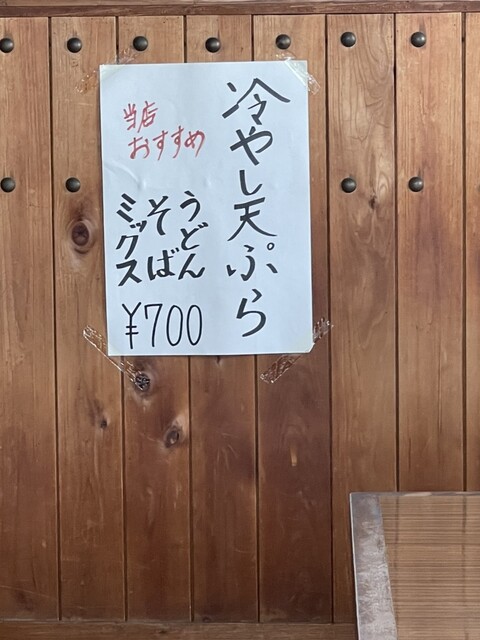 冷やし天ぷら
当店
おすすめ
うどん
そば
ミックス
¥700